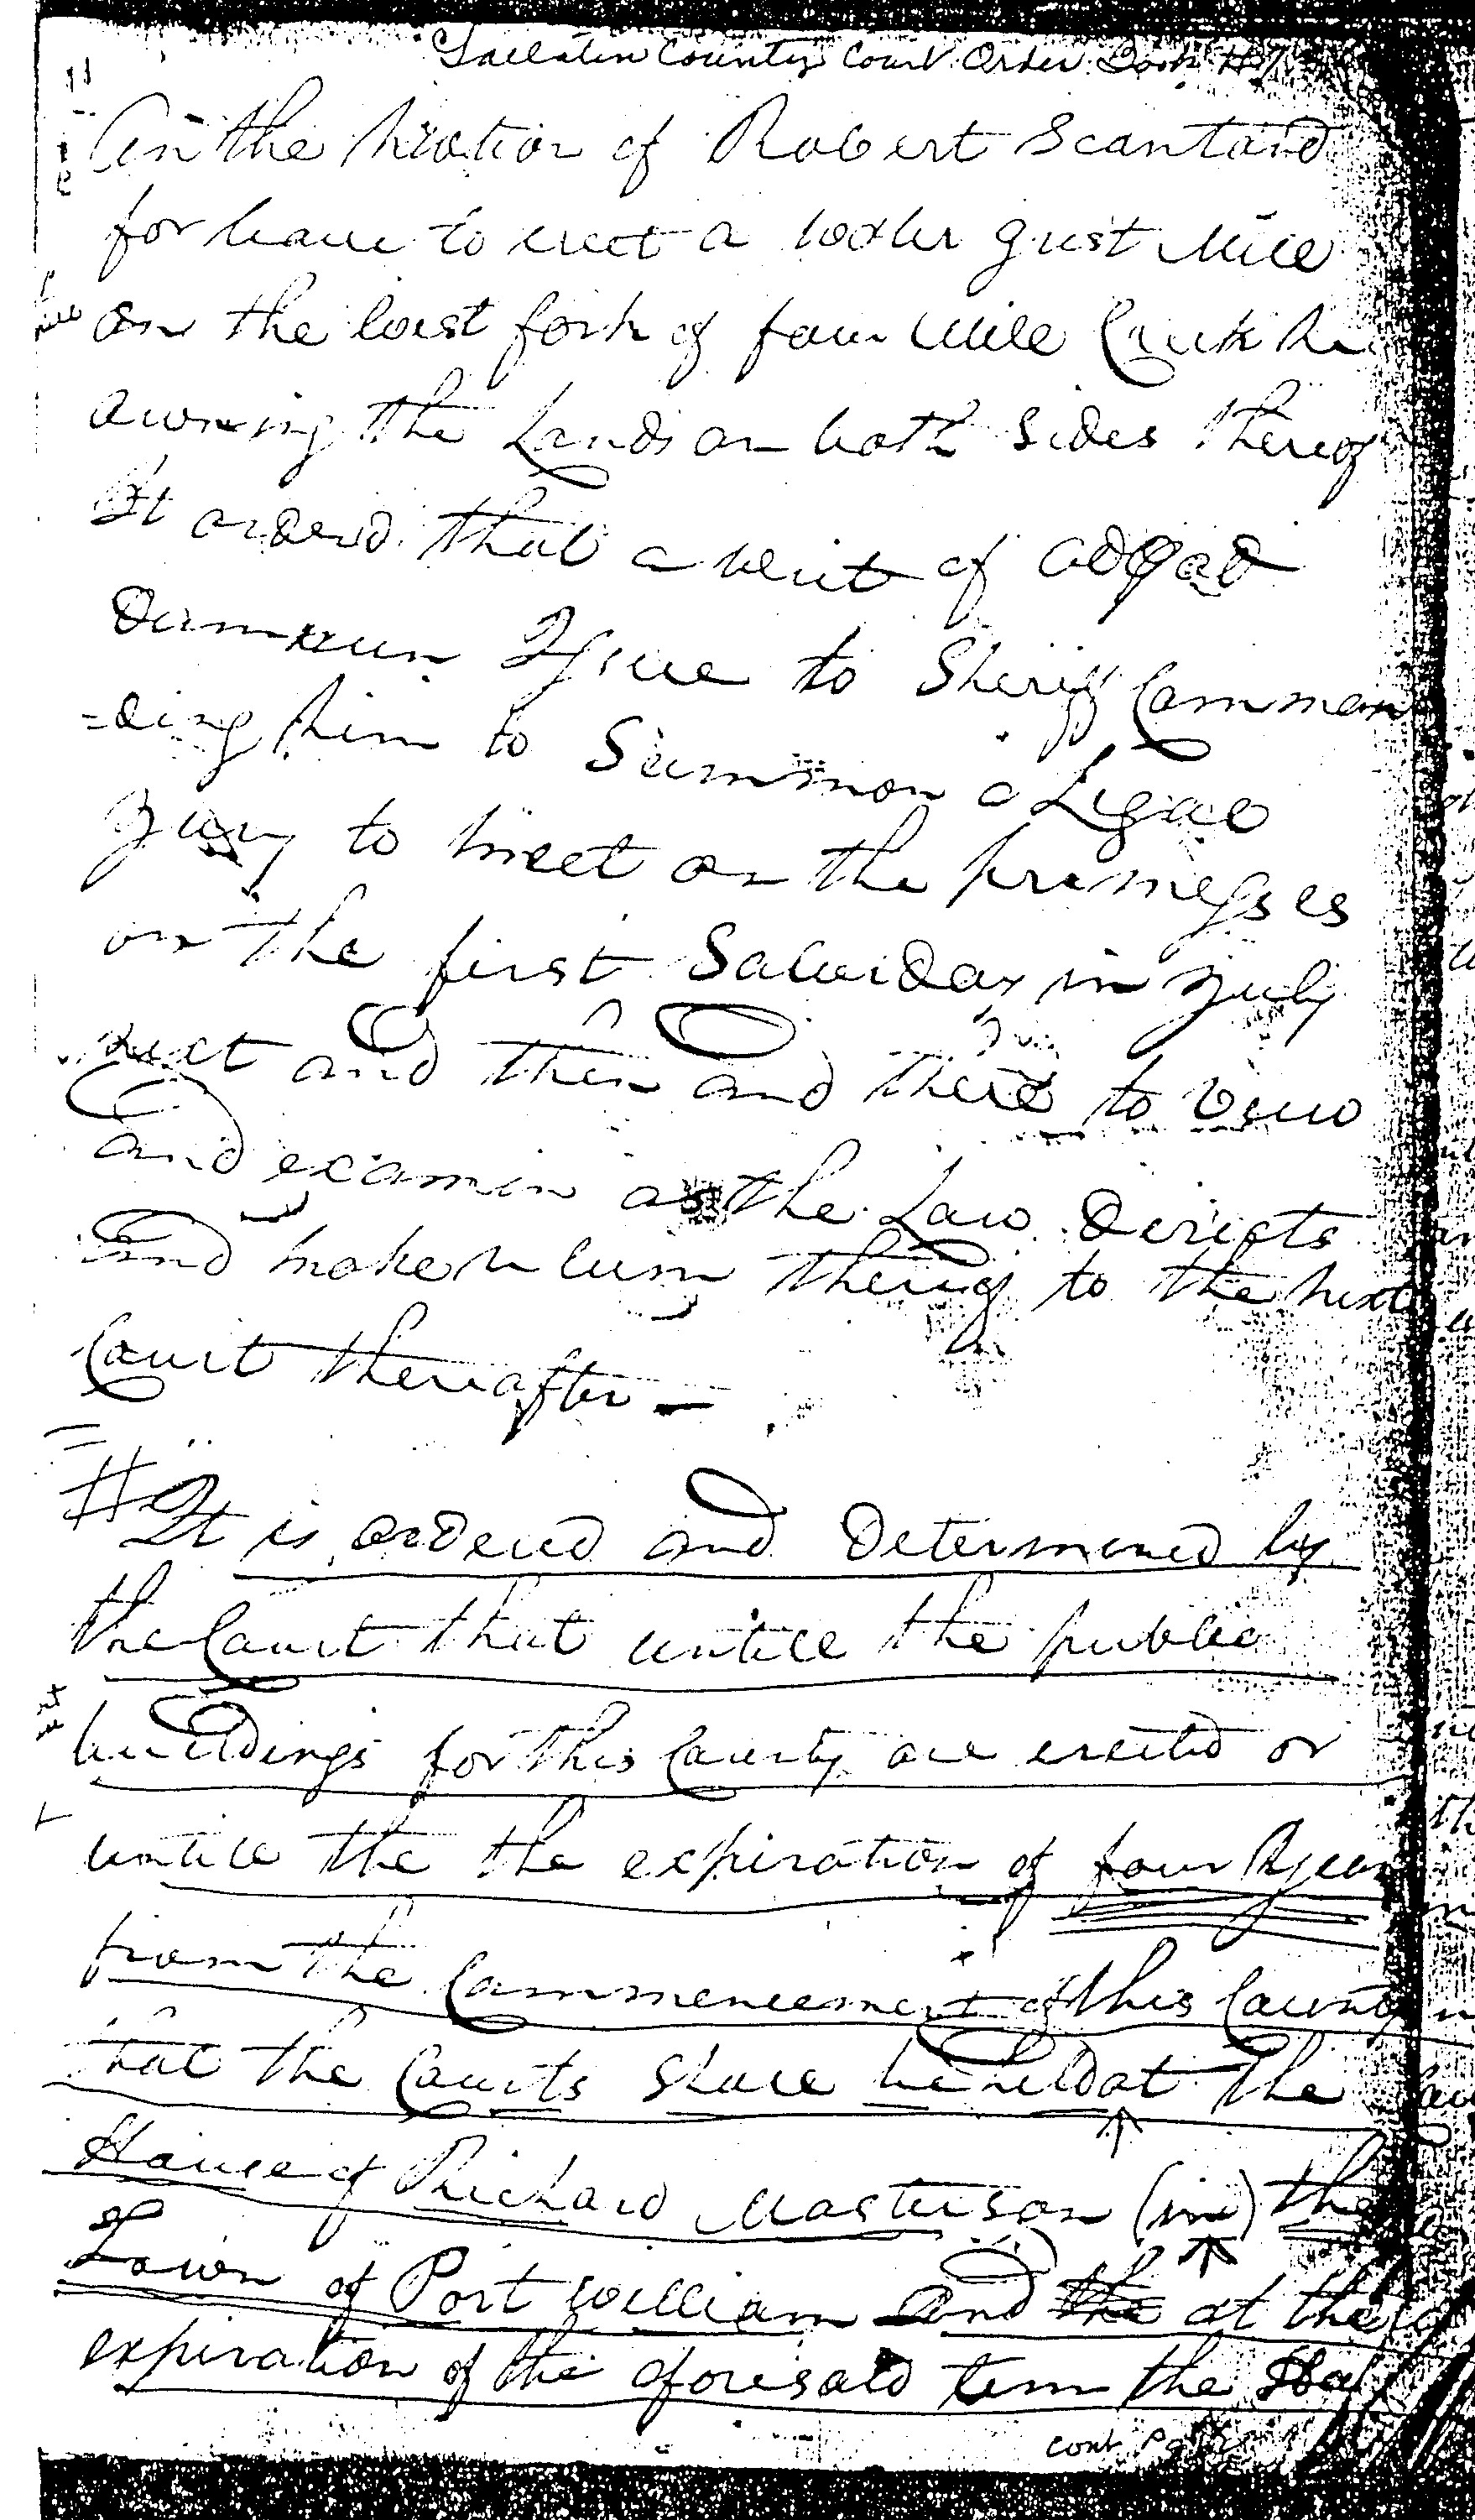 Gallatin County Court Order Book
On the Motion of Robert Scantland
for leave to erect a water grist Mill
on the West fork of four Mile Creek he
owning the Lands on both Sides thereof
It ordered that a writ of adqad
Damnum Issue to Sheriff Comman
=ding him to Summon a Legal
Jury to meet on the premisses
on the first Saturday in July
next and then and there to View
and examin as the Law Directs
and make return thereof to the next
Court thereafter —
# It is ordered and Determined by
the Court that untill the public
buildings for this County are erected or
untill the the expiration of four Years
from the Commencement of this County
that the Courts Shall be held at the
House of Richard Masterson (in) the
Town of Port William and the at the
expiration of the aforesaid term the
cont